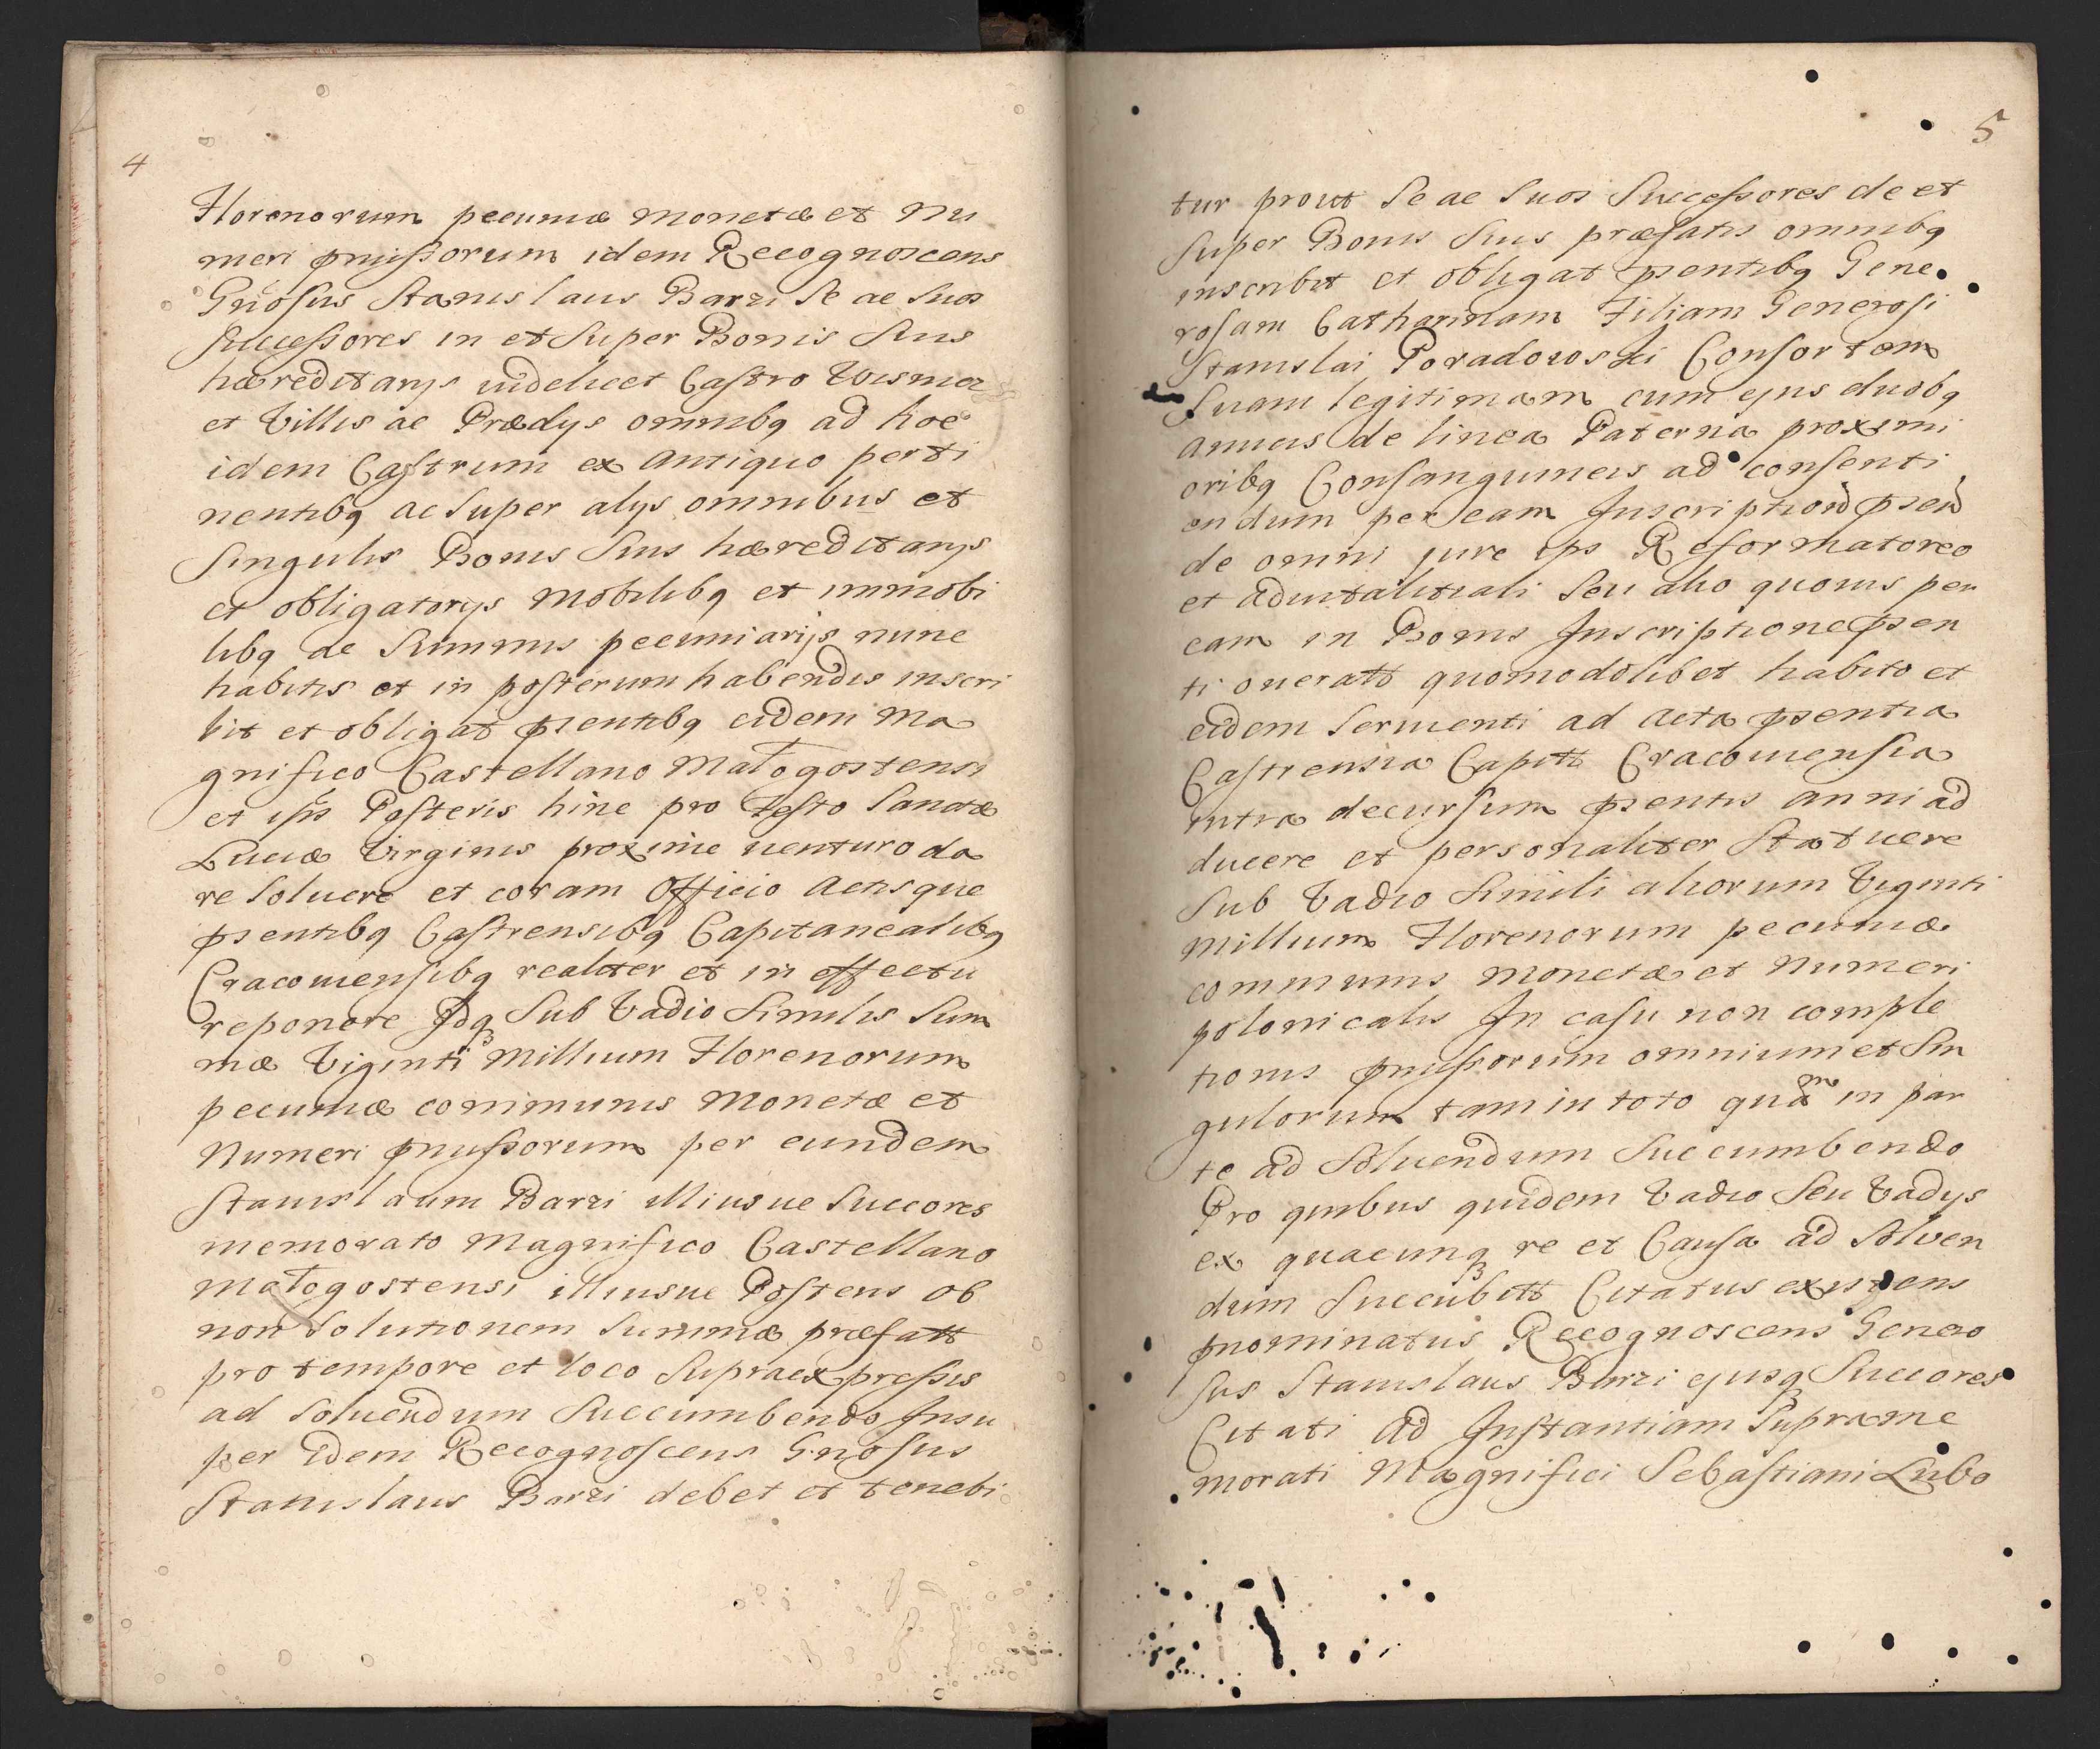 4
Florenorum pecuniæ monetæ et Nu
meri pmissorum idem Recognoscens
Gnosus Stanislaus Barzi Se ac Suos
Successores in et Super Bonis Suis
hæreditarys uidelicet Castro Wisnicz
et Villis ac Prædys omnibq ad hoc
idem Castrum ex antiquo perti
nentibq ac Super alys omnibus et
Singulis Bonis Suis hæreditarys
et obligatorys Mobilibq et immobi
libq ac Summis pecuniarijs nunc
habitis et in posterum habendis inscri
bit et obligat psentibq eidem Ma
gnifico Castellano Małogostensi
et ips Posteris hinc pro Festo Sanctæ
Luciæ Virginis proxime uenturo da
re Soluere et coram Officio Actisque
psentibq Castrensibq Capitanealibq
Cracouiensibq realiter et in effectu
reponere Idq Sub Vadio Similis Sum
mæ Viginti Millium Florenorum
pecuniæ communis Monetæ et
Numeri pmissorum per eundem
Stanislaum Barzi illiusue Succores
memorato Magnifico Castellano
Małogostensi illiusue Posteris ob
non Solutionem Summæ præfatt
pro tempore et loco Supraexpressis
ad Soluendum Succumbendo Insu
per idem Recognoscens Gnosus
Stanislaus Barzi debet et tenebi
5
tur prout Se ac Suos Successores de et
Super Bonis Suis præfatis omnibq
inscribit et obligat psentibq Gene
rosam Catharinam Filiam Generosi
Stanislai Poradowski Consortem
Suam legitimam cum ejus duobq
amicis de linea Paterna proximi
oribq Consanguineis ad consenti
endum per eam Inscriptioni psen
de omni jure ips Reformatoreo
et aduitalitiali Seu alio quouis per
eam in Bonis Inscriptione psen
ti oneratt quomodolibet habito et
eidem Seruienti ad Acta psentia
Castrensia Capitt Cracouiensia
intra decursum psentis anni ad
ducere et personaliter Statuere
Sub Vadio Simili aliorum Viginti
Millium Florenorum pecuniæ
communis Monetæ et Numeri
polonicalis In casu non comple
tionis pmissorum omnium et Sin
gulorum tam in toto quam in par
te ad Soluendum Succumbendo
Pro quibus quidem Vadio Seu Vadys
ex quacunq re et Causa ad Solven
dum Succubitt Citatus existens
pnominatus Recognoscens Genero
sus Stanislaus Barzi ejusq Succores
Citati Ad Instantiam Suprame
morati Magnifici Sebastiani Lubo